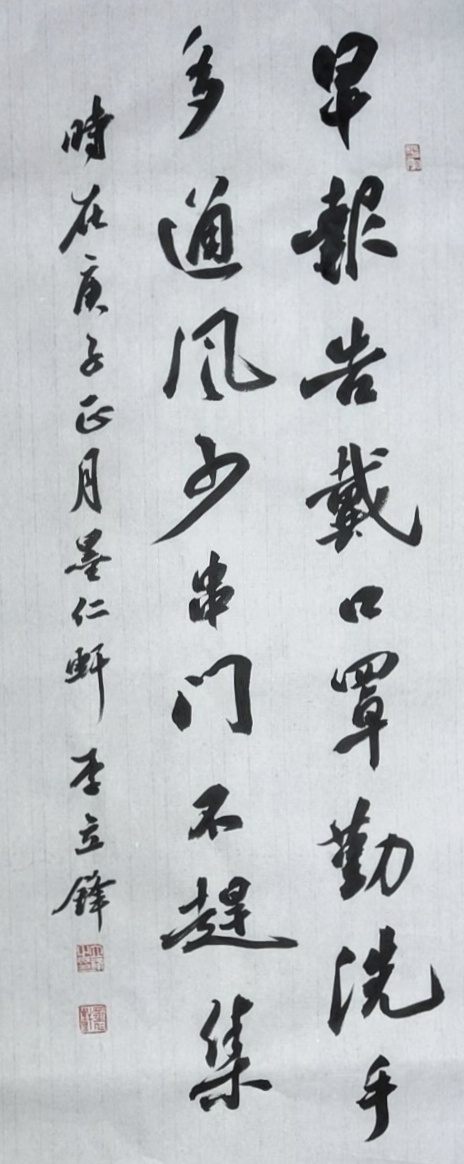 早報告戴口罩勤洗手
多通風少串门不趕集
時在庚子正月墨仁軒李立鋒